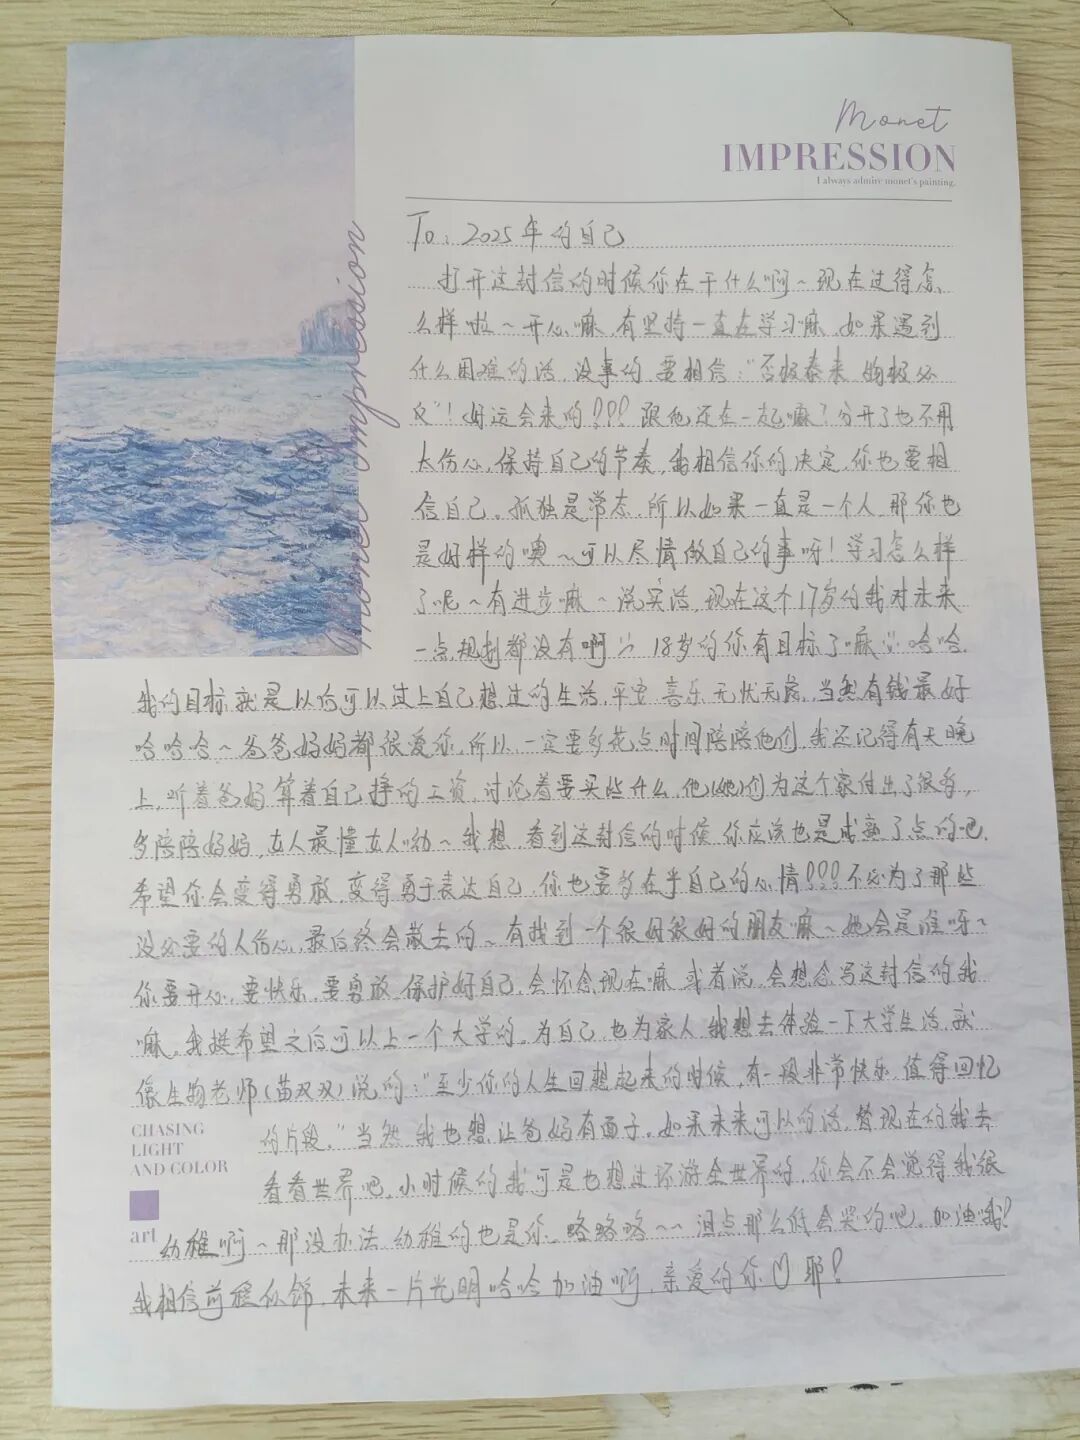 Monet
IMPRESSION
I always admire monet's painting.
Monet Impression
To: 2025年的自己
打开这封信的时候你在干什么啊~现在过得怎
么样啦~开心嘛,有坚持一直在学习嘛,如果遇到
什么困难的话,没事的,要相信:"否极泰来,物极必
反"!好运会来的!!!跟他还在一起嘛?分开了也不用
太伤心,保持自己的节奏,我相信你的决定,你也要相
信自己。孤独是常态,所以如果一直是一个人,那你也
是好样的噢~可以尽情做自己的事呀!学习怎么样
了呢~有进步嘛~说实话,现在这个17岁的我对未来
一点规划都没有啊 18岁的你有目标了嘛 哈哈,
我的目标就是以后可以过上自己想过的生活,平安,喜乐,无忧无虑,当然有钱最好
哈哈哈~爸爸妈妈都很爱你,所以一定要多花点时间陪陪他们,我还记得有天晚
上,听着爸妈算着自己挣的工资,讨论着要买些什么,他(她)们为这个家付出了很多,
多陪陪妈妈,女人最懂女人呦~我想,看到这封信的时候,你应该也是成熟了点的吧,
希望你会变得勇敢,变得勇于表达自己,你也要多在乎自己的心情!!!不必为了那些
没必要的人伤心,最后终会散去的~有找到一个很好很好的朋友嘛~她会是谁呀~
你要开心,要快乐,要勇敢,保护好自己,会怀念现在嘛,或者说,会想念写这封信的我
嘛,我挺希望之后可以上一个大学的,为自己,也为家人,我想去体验一下大学生活,就
像生物老师(苗双双)说的:"至少你的人生回想起来的时候,有一段非常快乐,值得回忆
的片段。"当然,我也想让爸妈有面子。如果未来可以的话,替现在的我去
看看世界吧,小时候的我可是也想过环游全世界的,你会不会觉得我很
幼稚啊~那没办法,幼稚的也是你,略略略~~泪点那么低会哭的吧,加油哦!
我相信前程似锦,未来一片光明哈哈加油啊,亲爱的你♡耶!
CHASING
LIGHT
AND COLOR
art